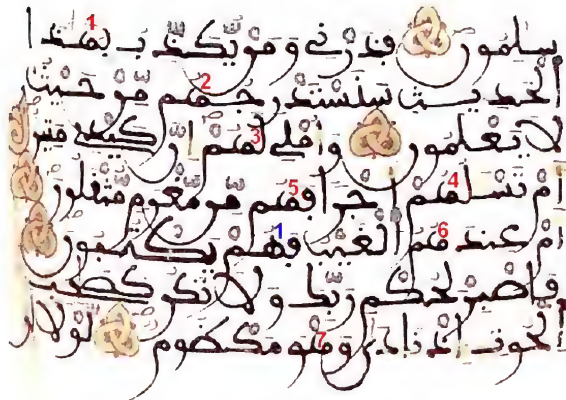 سلمون فذرني ومن يكذب بهذا 1
الحديث سنستدرجهم 2 من حيث
لا يعلمون واملي لهم 3 ان كيدي متين
ام تسلهم 4 اجرا فهم 5 من مغرم مثقلون
ام عندهم 6 الغيب فهم 1 يكتبون
فاصبر لحكم ربك ولا تكن كصحب
الحوت اذ نادى وهو 7 مكظوم لولا ان